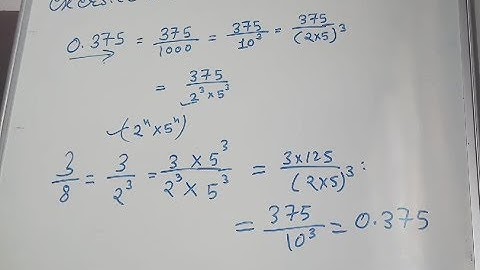 0.375 = 375/1000 = 375/10³ = 375/(2×5)³
= 375/2³×5³
(2ⁿ×5ⁿ)
3/8 = 3/2³ = 3×5³/2³×5³ = 3×125/(2×5)³ :
= 375/10³ = 0.375